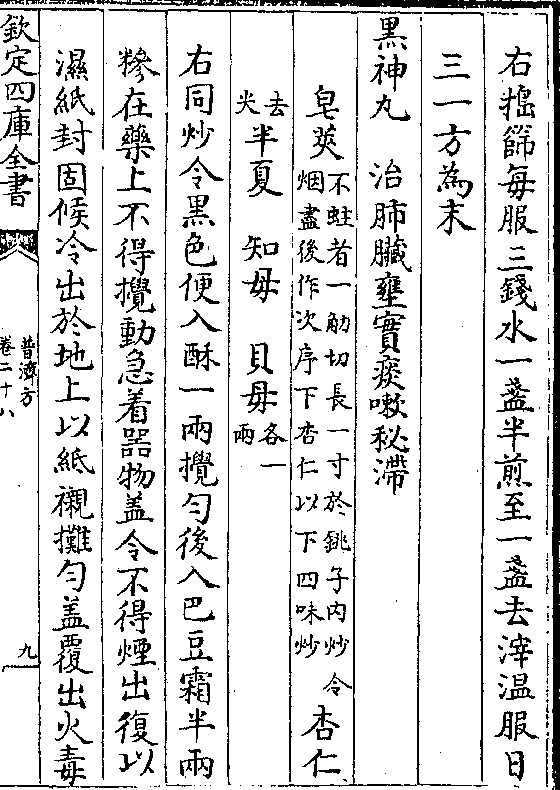 右擣篩每服三錢水一盞半煎至一盞去滓温服日
三一方為末
黒神丸　治肺臟壅實痰嗽秘滯
皂莢不蛀者一觔切長一寸於銚子内炒令
烟盡後作次序下杏仁以下四味炒　杏仁
去
尖半夏　知母　貝母各一
兩
右同炒令黒色便入酥一兩攪勻後入巴豆霜半兩
糝在藥上不得攪動急着器物盖令不得煙出復以
濕紙封固候冷出於地上以紙襯攤勻盖覆出火毒
欽定四庫全書
普濟方
卷二十八
九